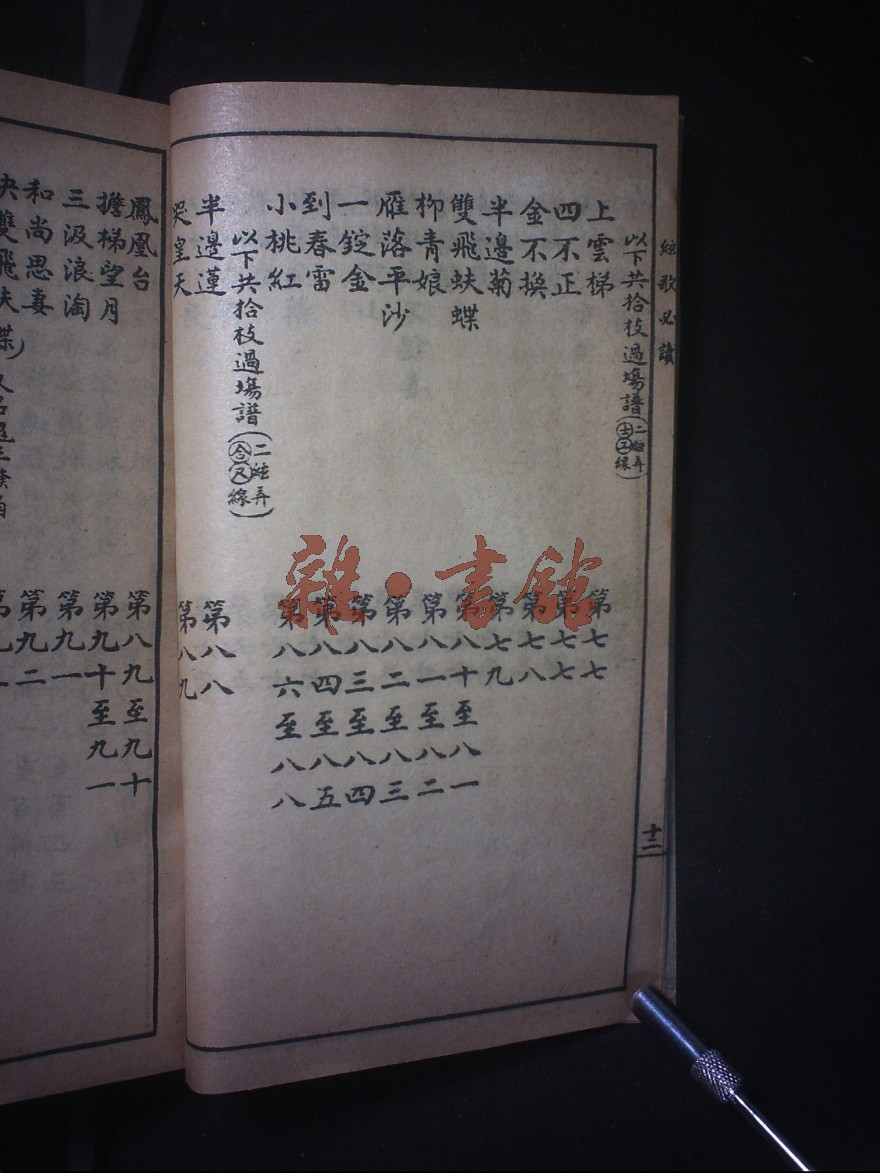 絃歌必讀
以下共拾枝過場譜(二絃弄士工線)
上雲梯 第七七
四不正 第七七
金不換 第七八
半邊菊 第七九
雙飛蚨蝶 第八十至八一
柳青娘 第八一至八二
雁落平沙 第八二至八三
一錠金 第八三至八四
到春雷 第八四至八五
小桃紅 第八六至八八
以下共拾枝過場譜(二絃弄合尺線)
半邊蓮 第八八
哭皇天 第八九
十二
鳳凰台 第八九至九十
擔梯望月 第九十至九一
三汲浪淘 第九一
和尚思妻 第九二
雙飛蚨蝶
雜·書館